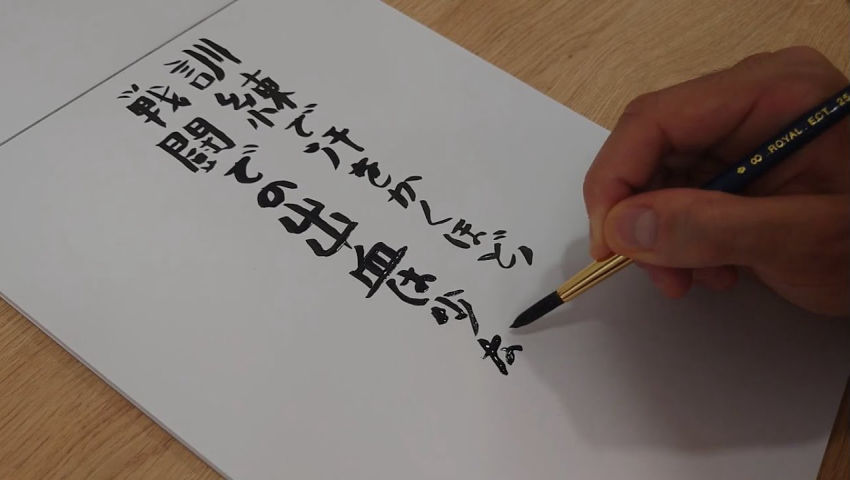 訓練で汗をかくほど、
戦闘での出血は少な
8 ROYAL. ECT. 25